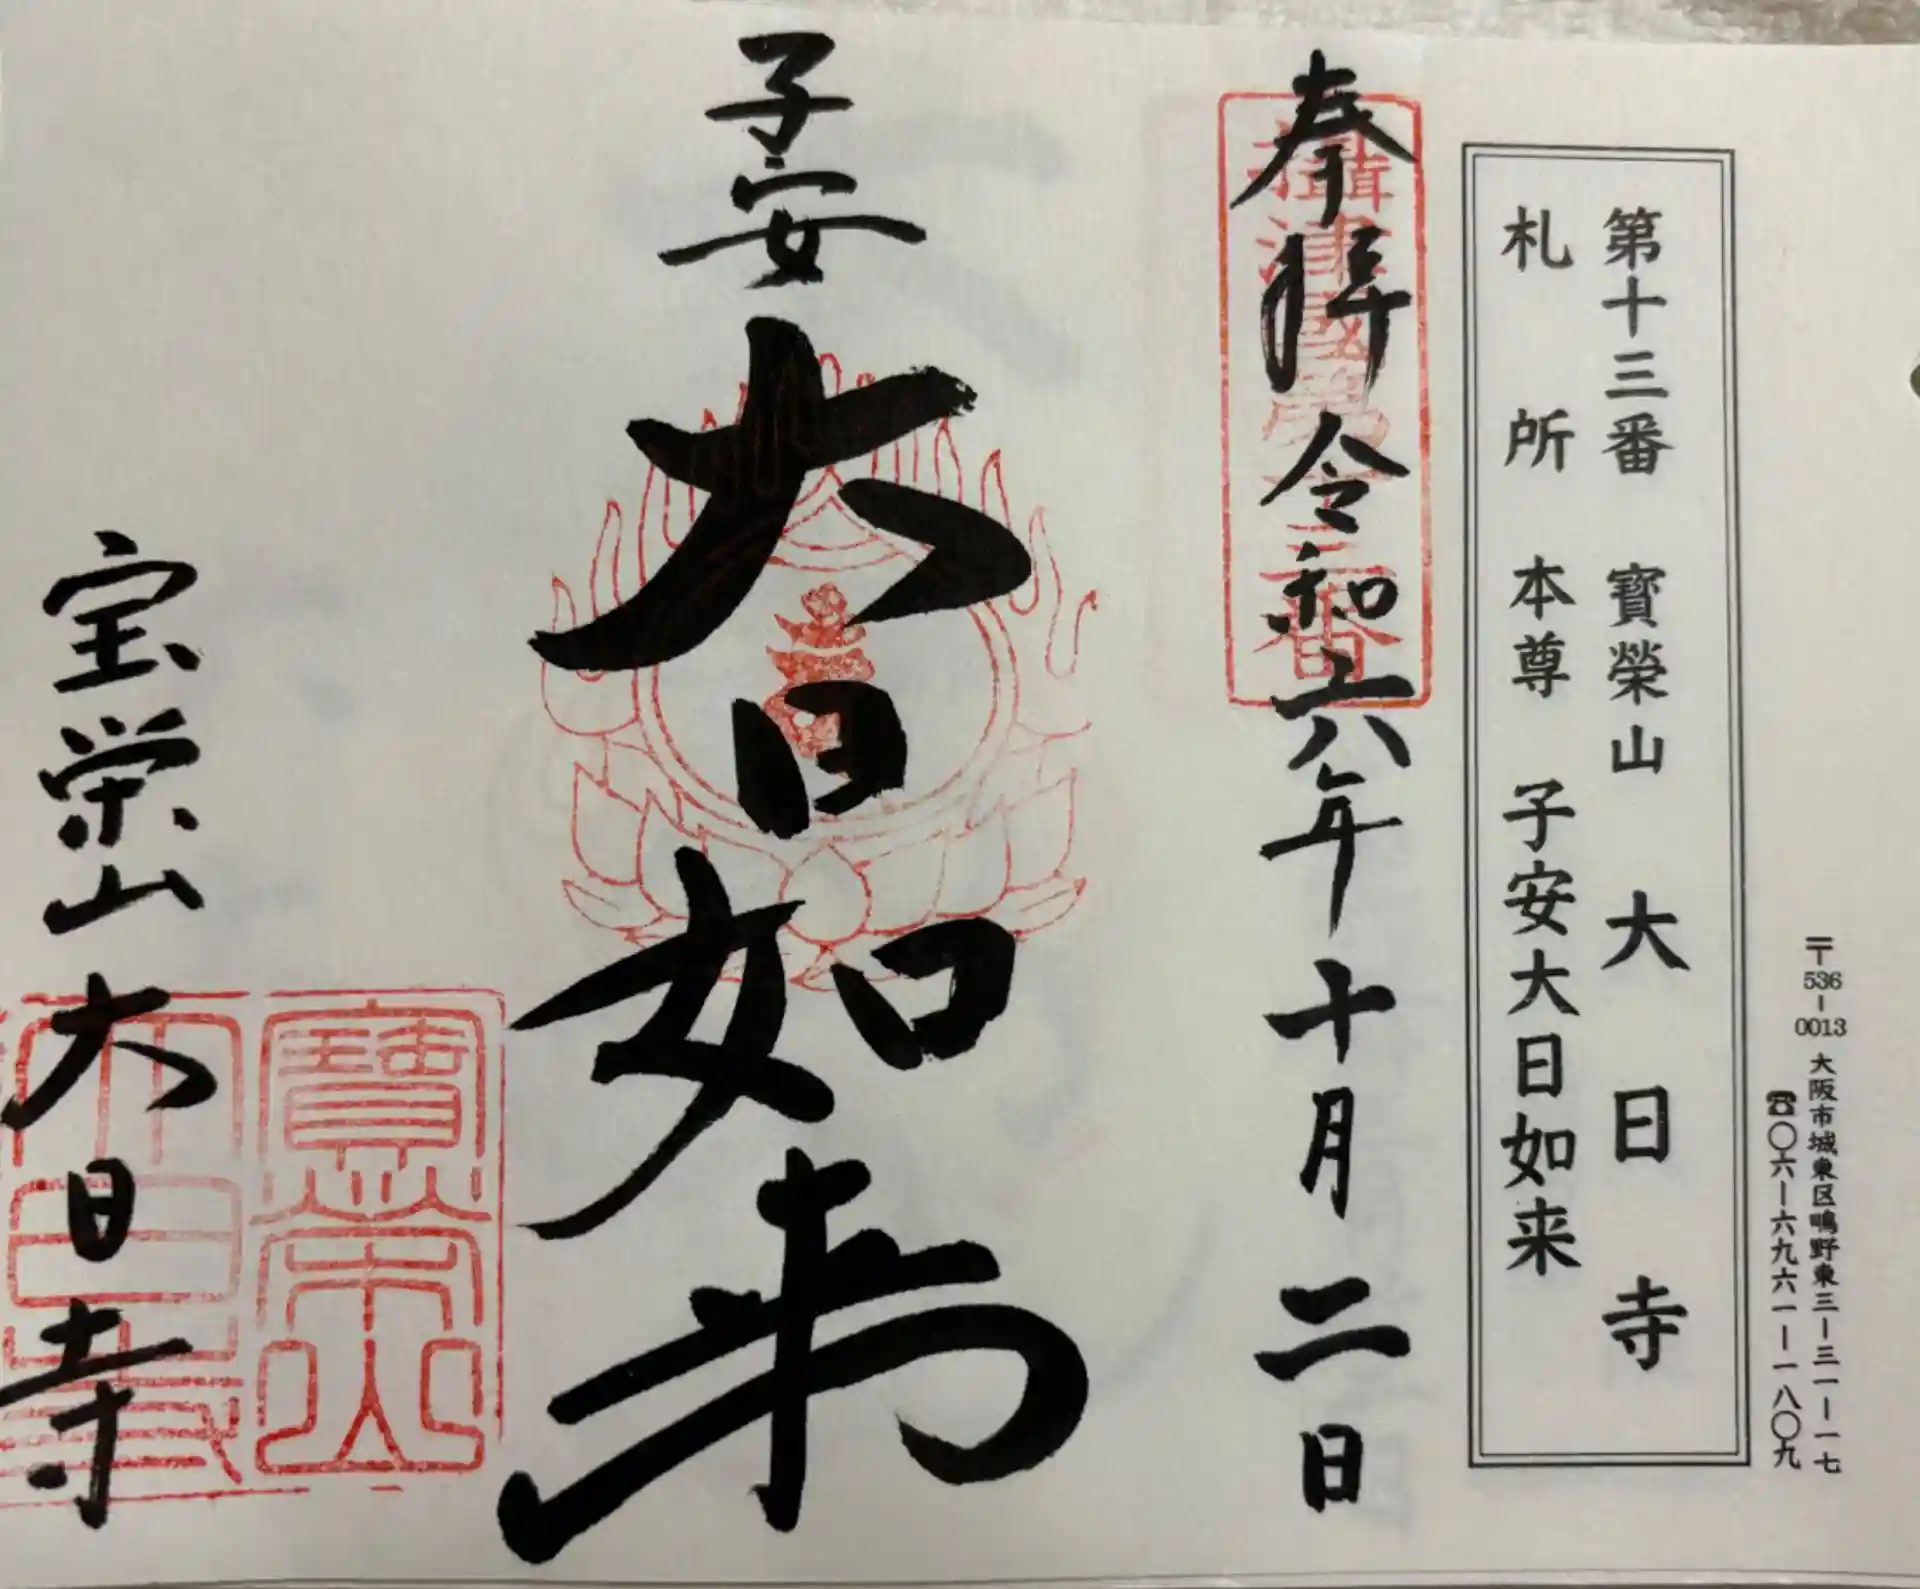 〒536-0013 大阪市城東区鴫野東三ー三一ー一七
☎〇六ー六九六一ー一八〇九
第十三番 寳榮山 大日寺
札所 本尊 子安大日如来
奉拝 令和六年十月二日
攝津國第十三番
子安 大日如来
宝栄山 大日寺
寳榮山
大日寺